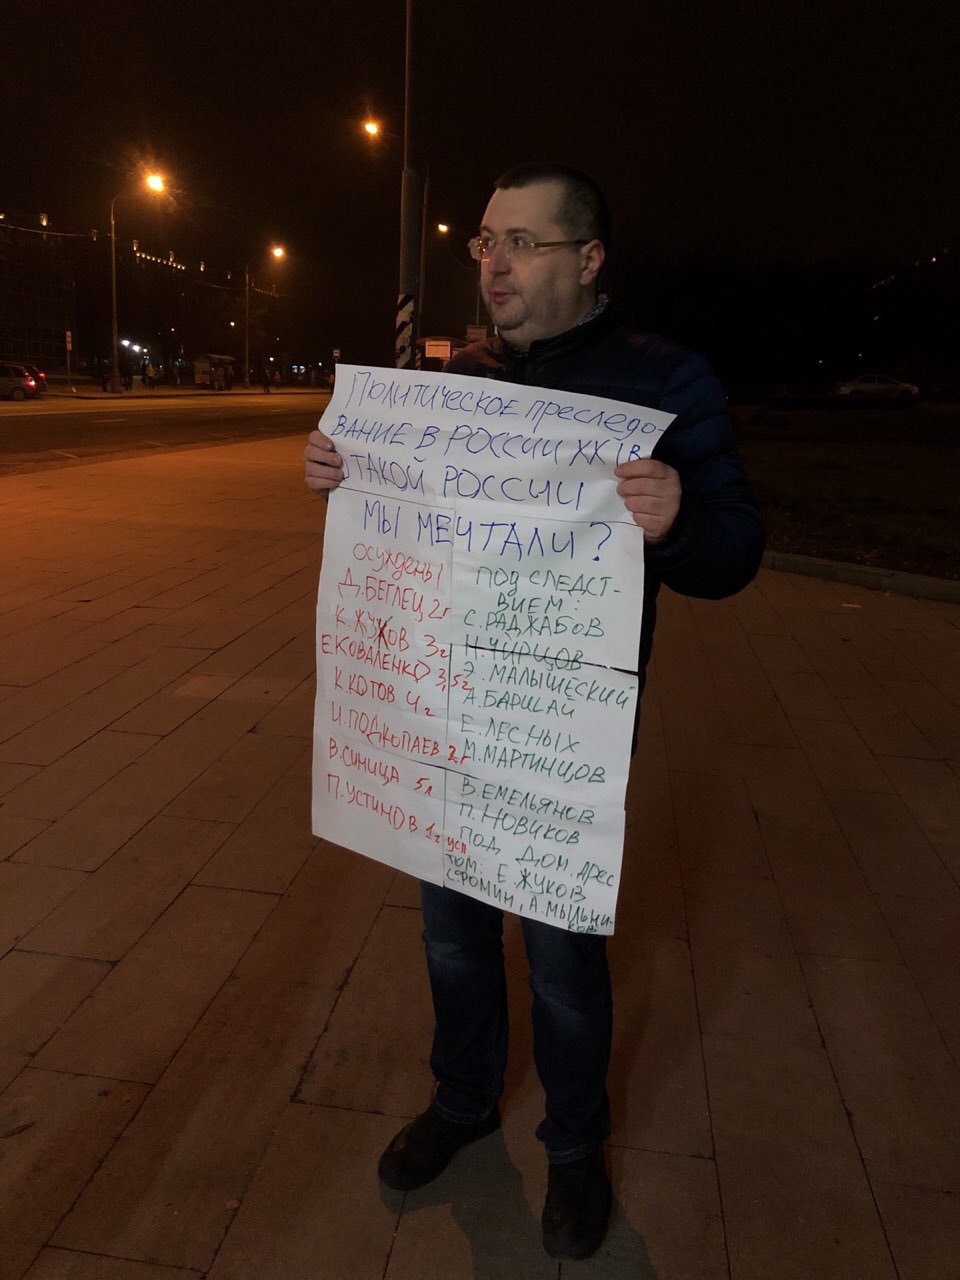 Политическое преследо-
вание в России XXI в
О такой России
мы мечтали?
осуждены
Д. Беглец 2г
К. Жуков 3г
Е. Коваленко 3,5г
К. Котов 4г
И. Подкопаев 2г
В. Синица 5л
П. Устинов 1г усл
под следст-
вием:
С. Раджабов
Н. Чирцов
Э. Малышеский
А. Баршай
Е. Лесных
М. Мартинцов
В. Емельянов
П. Новиков
под дом. арес
том: Е. Жуков
С. Фомин, А. Мыльни-
ков